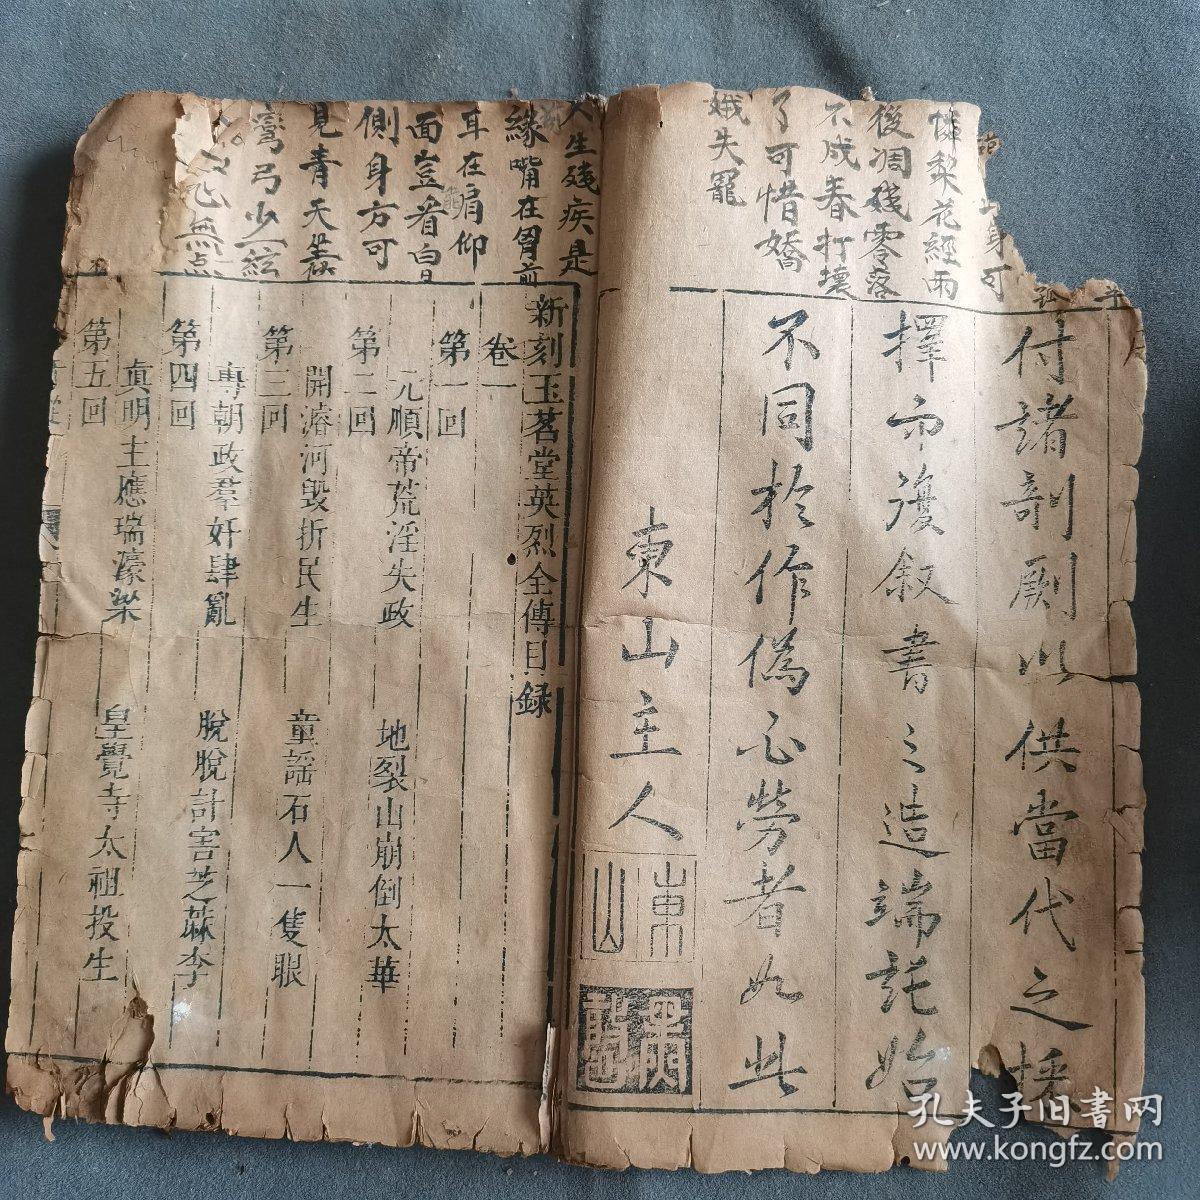 付諸剞劂以供當代之採
擇而復叙書之造端託始
不同於作偽心勞者如此
東山主人
東山
憐梨花經雨
後凋殘零落
不成春打壞
了可惜嬌
娥失寵
人生殘疾是
緣嘴在胷前
耳在肩仰
面豈看白日
側身方可
見青天
彎弓少一絃
無点
新刻玉茗堂英烈全傳目錄
卷一
第一回
元順帝荒淫失政 地裂山崩倒太華
第二回
開濬河毀折民生 童謠石人一隻眼
第三回
專朝政羣奸肆亂 脫脫計害芝蔴李
第四回
真明主應瑞濠梁 皇覺寺太祖投生
第五回
孔夫子旧書网
www.kongfz.com